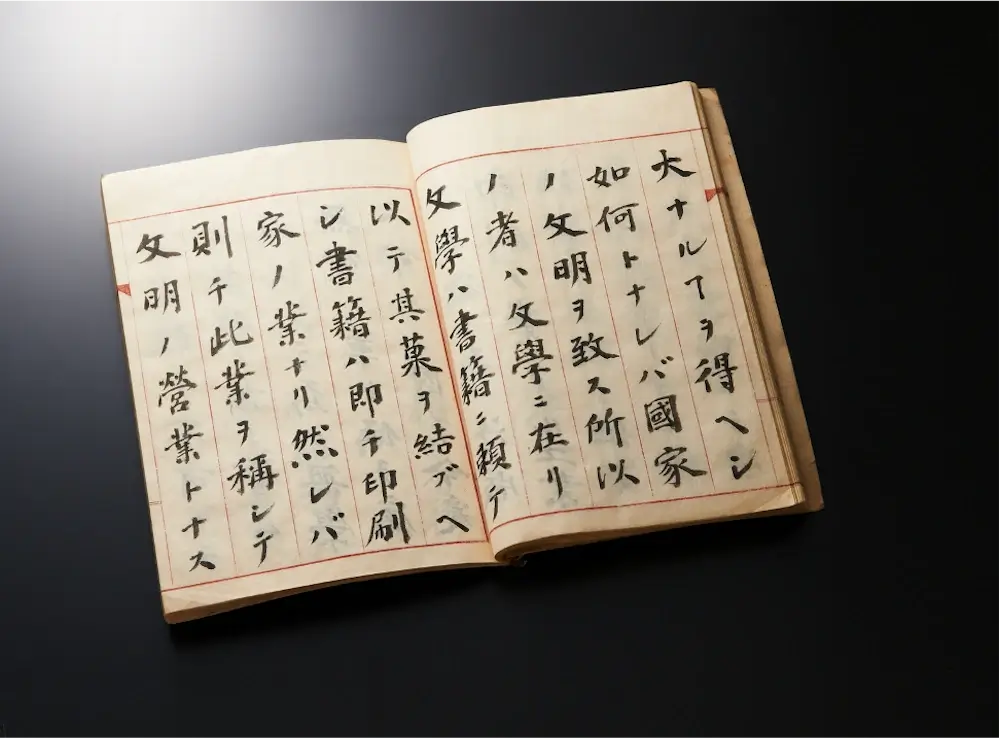 大ナルヿヲ得ヘシ
如何トナレバ國家
ノ文明ヲ致ス所以
ノ者ハ文學ニ在リ
文學ハ書籍ニ頼テ
以テ其菓ヲ結ブヘ
シ書籍ハ即チ印刷
家ノ業ナリ然レバ
則チ此業ヲ稱シテ
文明ノ營業トナス